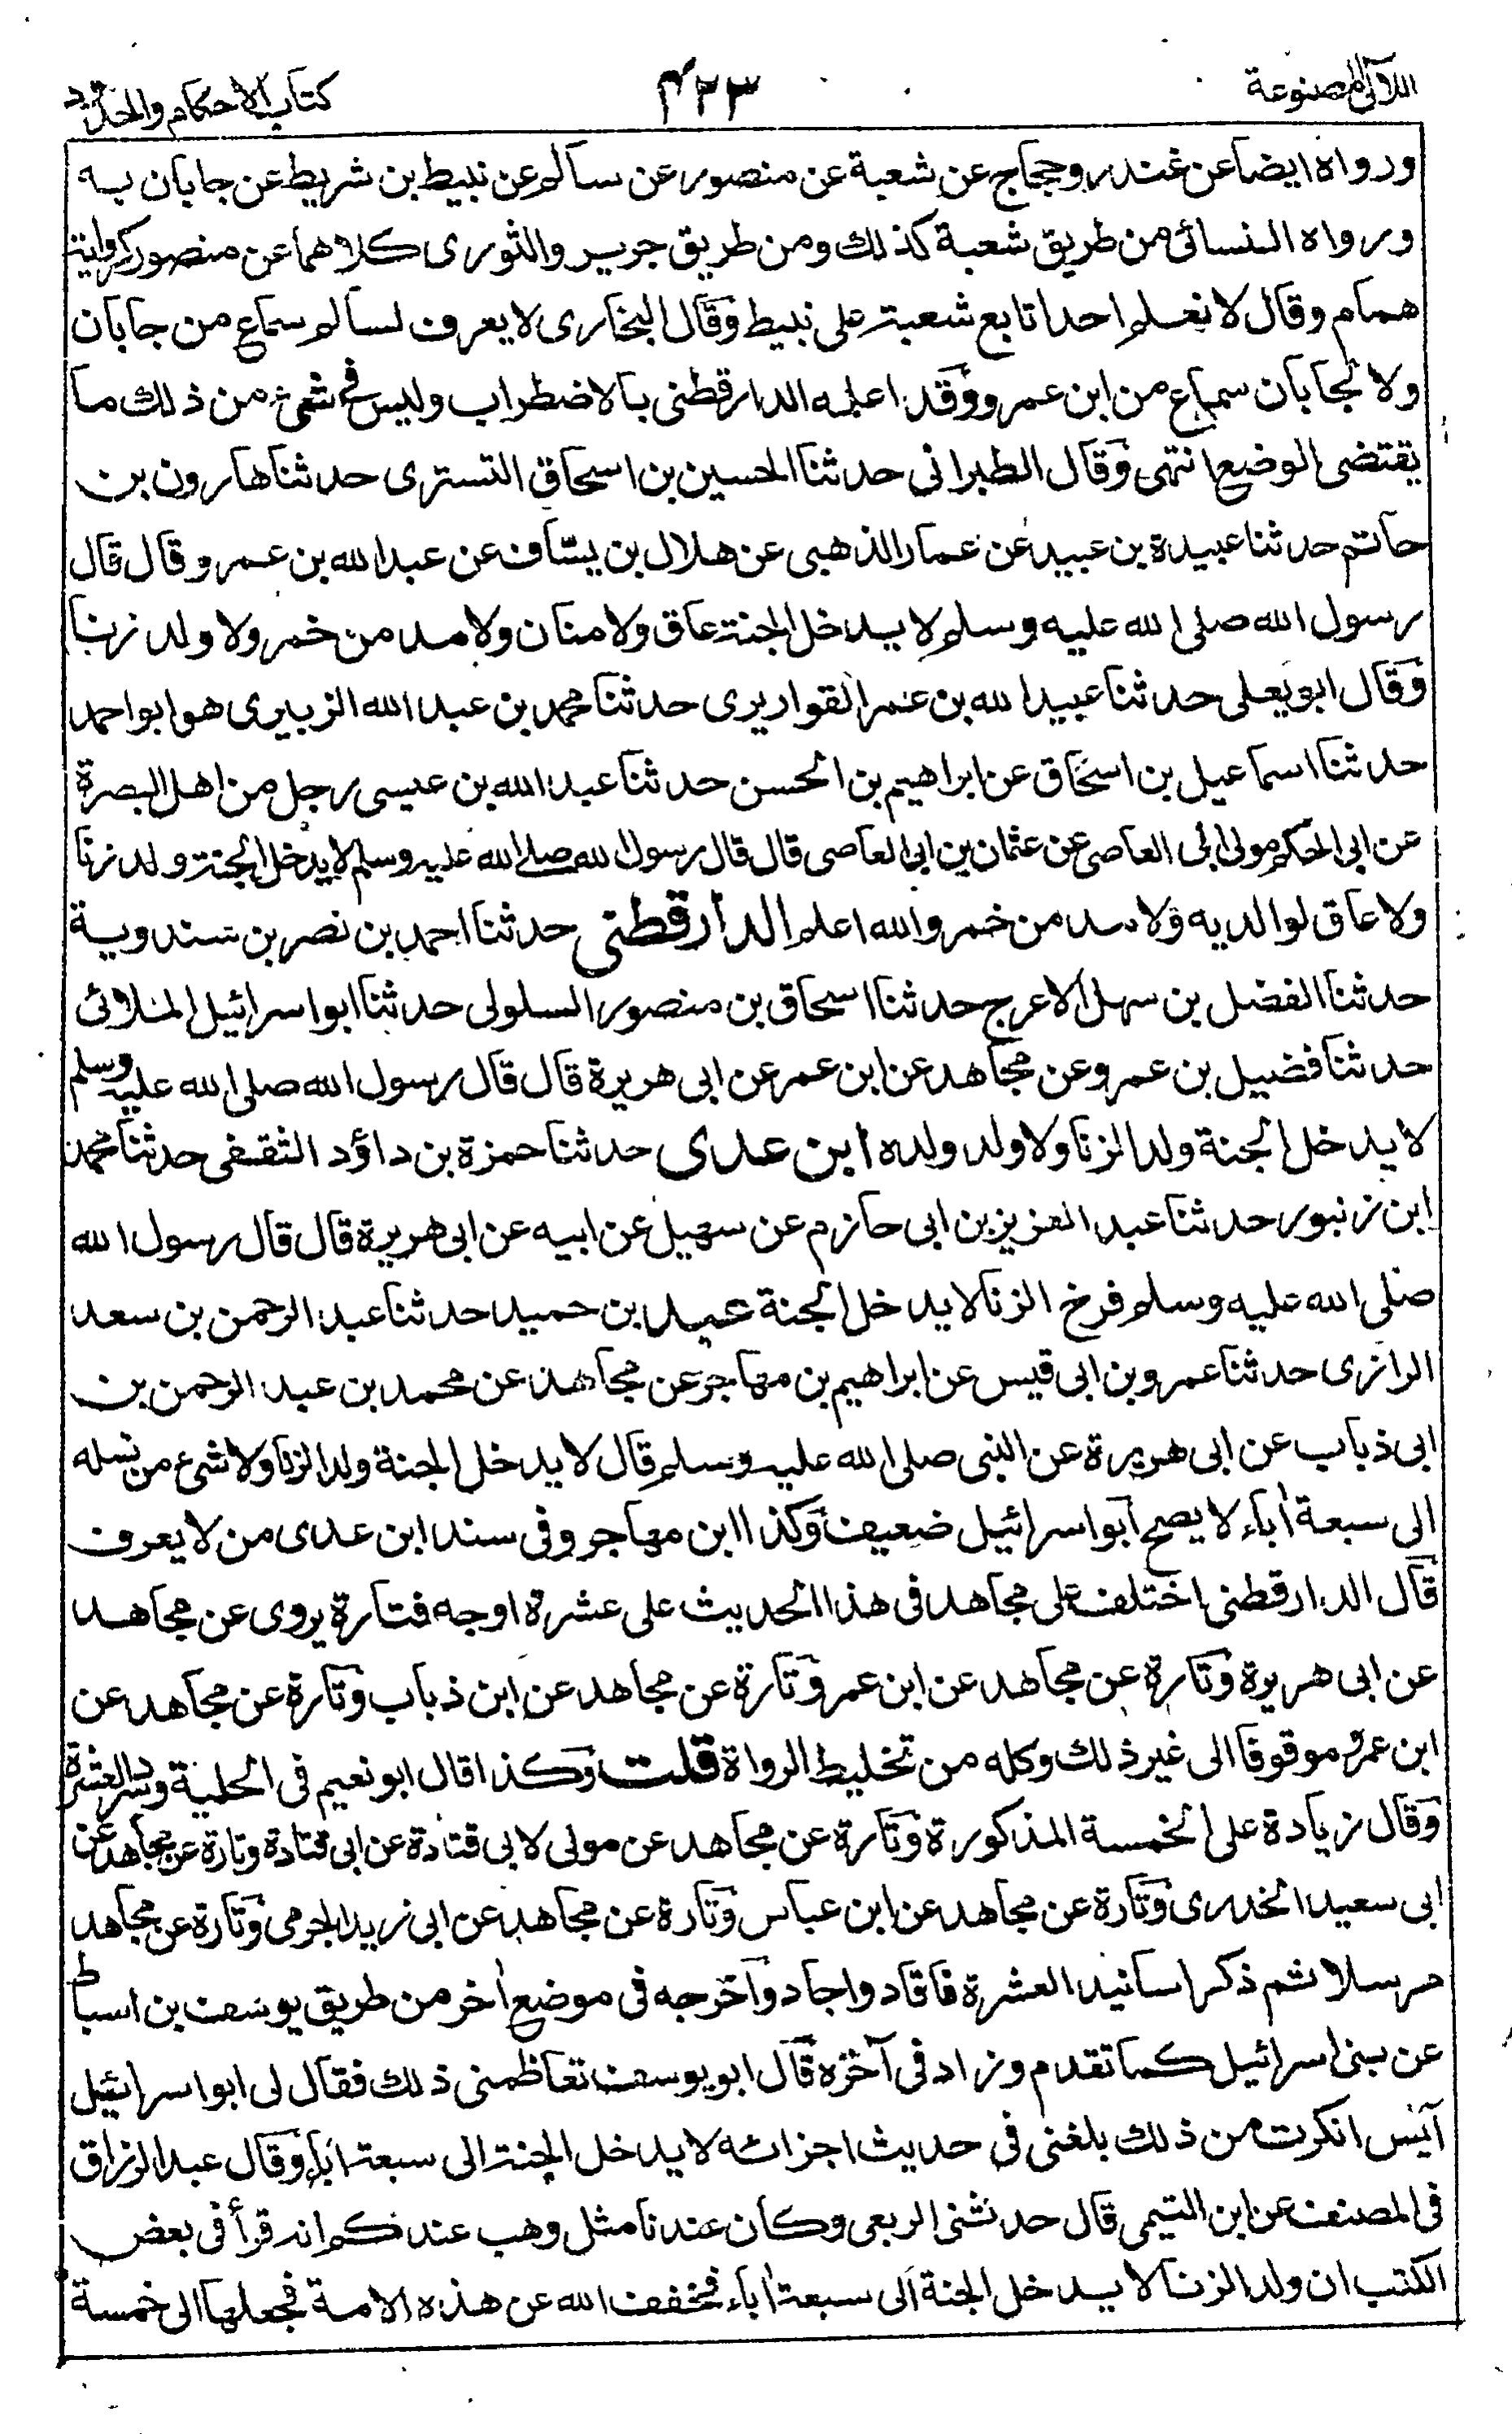 اللآلى المصنوعة
٤٢٣
كتاب الاحكام والحدود
ورواه ايضا عن غندر وحجاج عن شعبة عن منصور عن سالم عن نبيط بن شريط عن جابان به
ورواه النسائى من طريق شعبة كذلك ومن طريق جرير والثورى كلاهما عن منصور كرواية
همام وقال لا نعلم احدا تابع شعبة على نبيط وقال البخارى لا يعرف لسالم سماع من جابان
ولا لجابان سماع من ابن عمرو وقد اعله الدارقطنى بالاضطراب وليس فى شىء من ذلك ما
يقتضى الوضع انتهى وقال الطبرانى حدثنا الحسين بن اسحاق التسترى حدثنا هارون بن
حاتم حدثنا عبيدة بن عبيد عن عمار الذهبى عن هلال بن يساف عن عبد الله بن عمرو قال قال
رسول الله صلى الله عليه وسلم لا يدخل الجنة عاق ولا منان ولا مدمن خمر ولا ولد زنا
وقال ابو يعلى حدثنا عبيد الله بن عمر القواريرى حدثنا محمد بن عبد الله الزبيرى هو ابو احمد
حدثنا اسماعيل بن اسحاق عن ابراهيم بن الحسن حدثنا عبد الله بن عيسى رجل من اهل البصرة
عن ابى الحكم مولى ابى العاصى عن عثمان بن ابى العاصى قال قال رسول الله صلى الله عليه وسلم لا يدخل الجنة ولد زنا
ولا عاق لوالديه ولا مدمن خمر والله اعلم الدارقطنى حدثنا احمد بن نصر بن سندوية
حدثنا الفضل بن سهل الاعرج حدثنا اسحاق بن منصور السلولى حدثنا ابو اسرائيل الملائى
حدثنا فضيل بن عمرو عن مجاهد عن ابن عمر عن ابى هريرة قال قال رسول الله صلى الله عليه وسلم
لا يدخل الجنة ولد الزنا ولا ولد ولده ابن عدى حدثنا حمزة بن داؤد الثقفى حدثنا محمد
ابن زنبور حدثنا عبد العزيز بن ابى حازم عن سهيل عن ابيه عن ابى هريرة قال قال رسول الله
صلى الله عليه وسلم فرخ الزنا لا يدخل الجنة عبد بن حميد حدثنا عبد الرحمن بن سعد
الرازى حدثنا عمرو بن ابى قيس عن ابراهيم بن مهاجر عن مجاهد عن محمد بن عبد الرحمن بن
ابى ذباب عن ابى هريرة عن النبى صلى الله عليه وسلم قال لا يدخل الجنة ولد الزنا ولا شىء من نسله
الى سبعة أباء لا يصح ابو اسرائيل ضعيف وكذا ابن مهاجر وفى سند ابن عدى من لا يعرف
قال الدارقطنى اختلف على مجاهد فى هذا الحديث على عشرة اوجه فتارة يروى عن مجاهد
عن ابى هريرة وتارة عن مجاهد عن ابن عمر وتارة عن مجاهد عن ابن ذباب وتارة عن مجاهد عن
ابن عمرو موقوفا الى غير ذلك وكله من تخليط الرواة قلت وكذا قال ابو نعيم فى الحلية وسرد العشرة
وقال زيادة على الخمسة المذكورة وتارة عن مجاهد عن مولى لابى قتادة عن ابى قتادة وتارة عن مجاهد عن
ابى سعيد الخدرى وتارة عن مجاهد عن ابن عباس وتارة عن مجاهد عن ابى زيد الجرمى وتارة عن مجاهد
مرسلا ثم ذكر اسانيد العشرة فافاد واجاد واخرجه فى موضع أخر من طريق يوسف بن اسباط
عن بنى اسرائيل كما تقدم وزاد فى آخره قال ابو يوسف تعاظمنى ذلك فقال لى ابو اسرائيل
آيس انكرت من ذلك بلغنى فى حديث اجزائه لا يدخل الجنة الى سبعة أباء وقال عبد الرزاق
فى المصنف عن ابن التيمى قال حدثنى الربعى وكان عندنا مثل وهب عندكم انه قرأ فى بعض
الكتب ان ولد الزنا لا يدخل الجنة الى سبعة أباء فخفف الله عن هذه الامة فجعلها الى خمسة